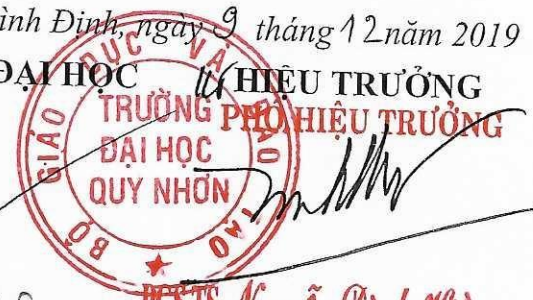 ình Định, ngày 9 tháng 12 năm 2019
ĐẠI HỌC HIỆU TRƯỞNG
PHÓ HIỆU TRƯỞNG
BỘ GIÁO DỤC VÀ ĐÀO TẠO
TRƯỜNG
ĐẠI HỌC
QUY NHƠN
PGS.TS.